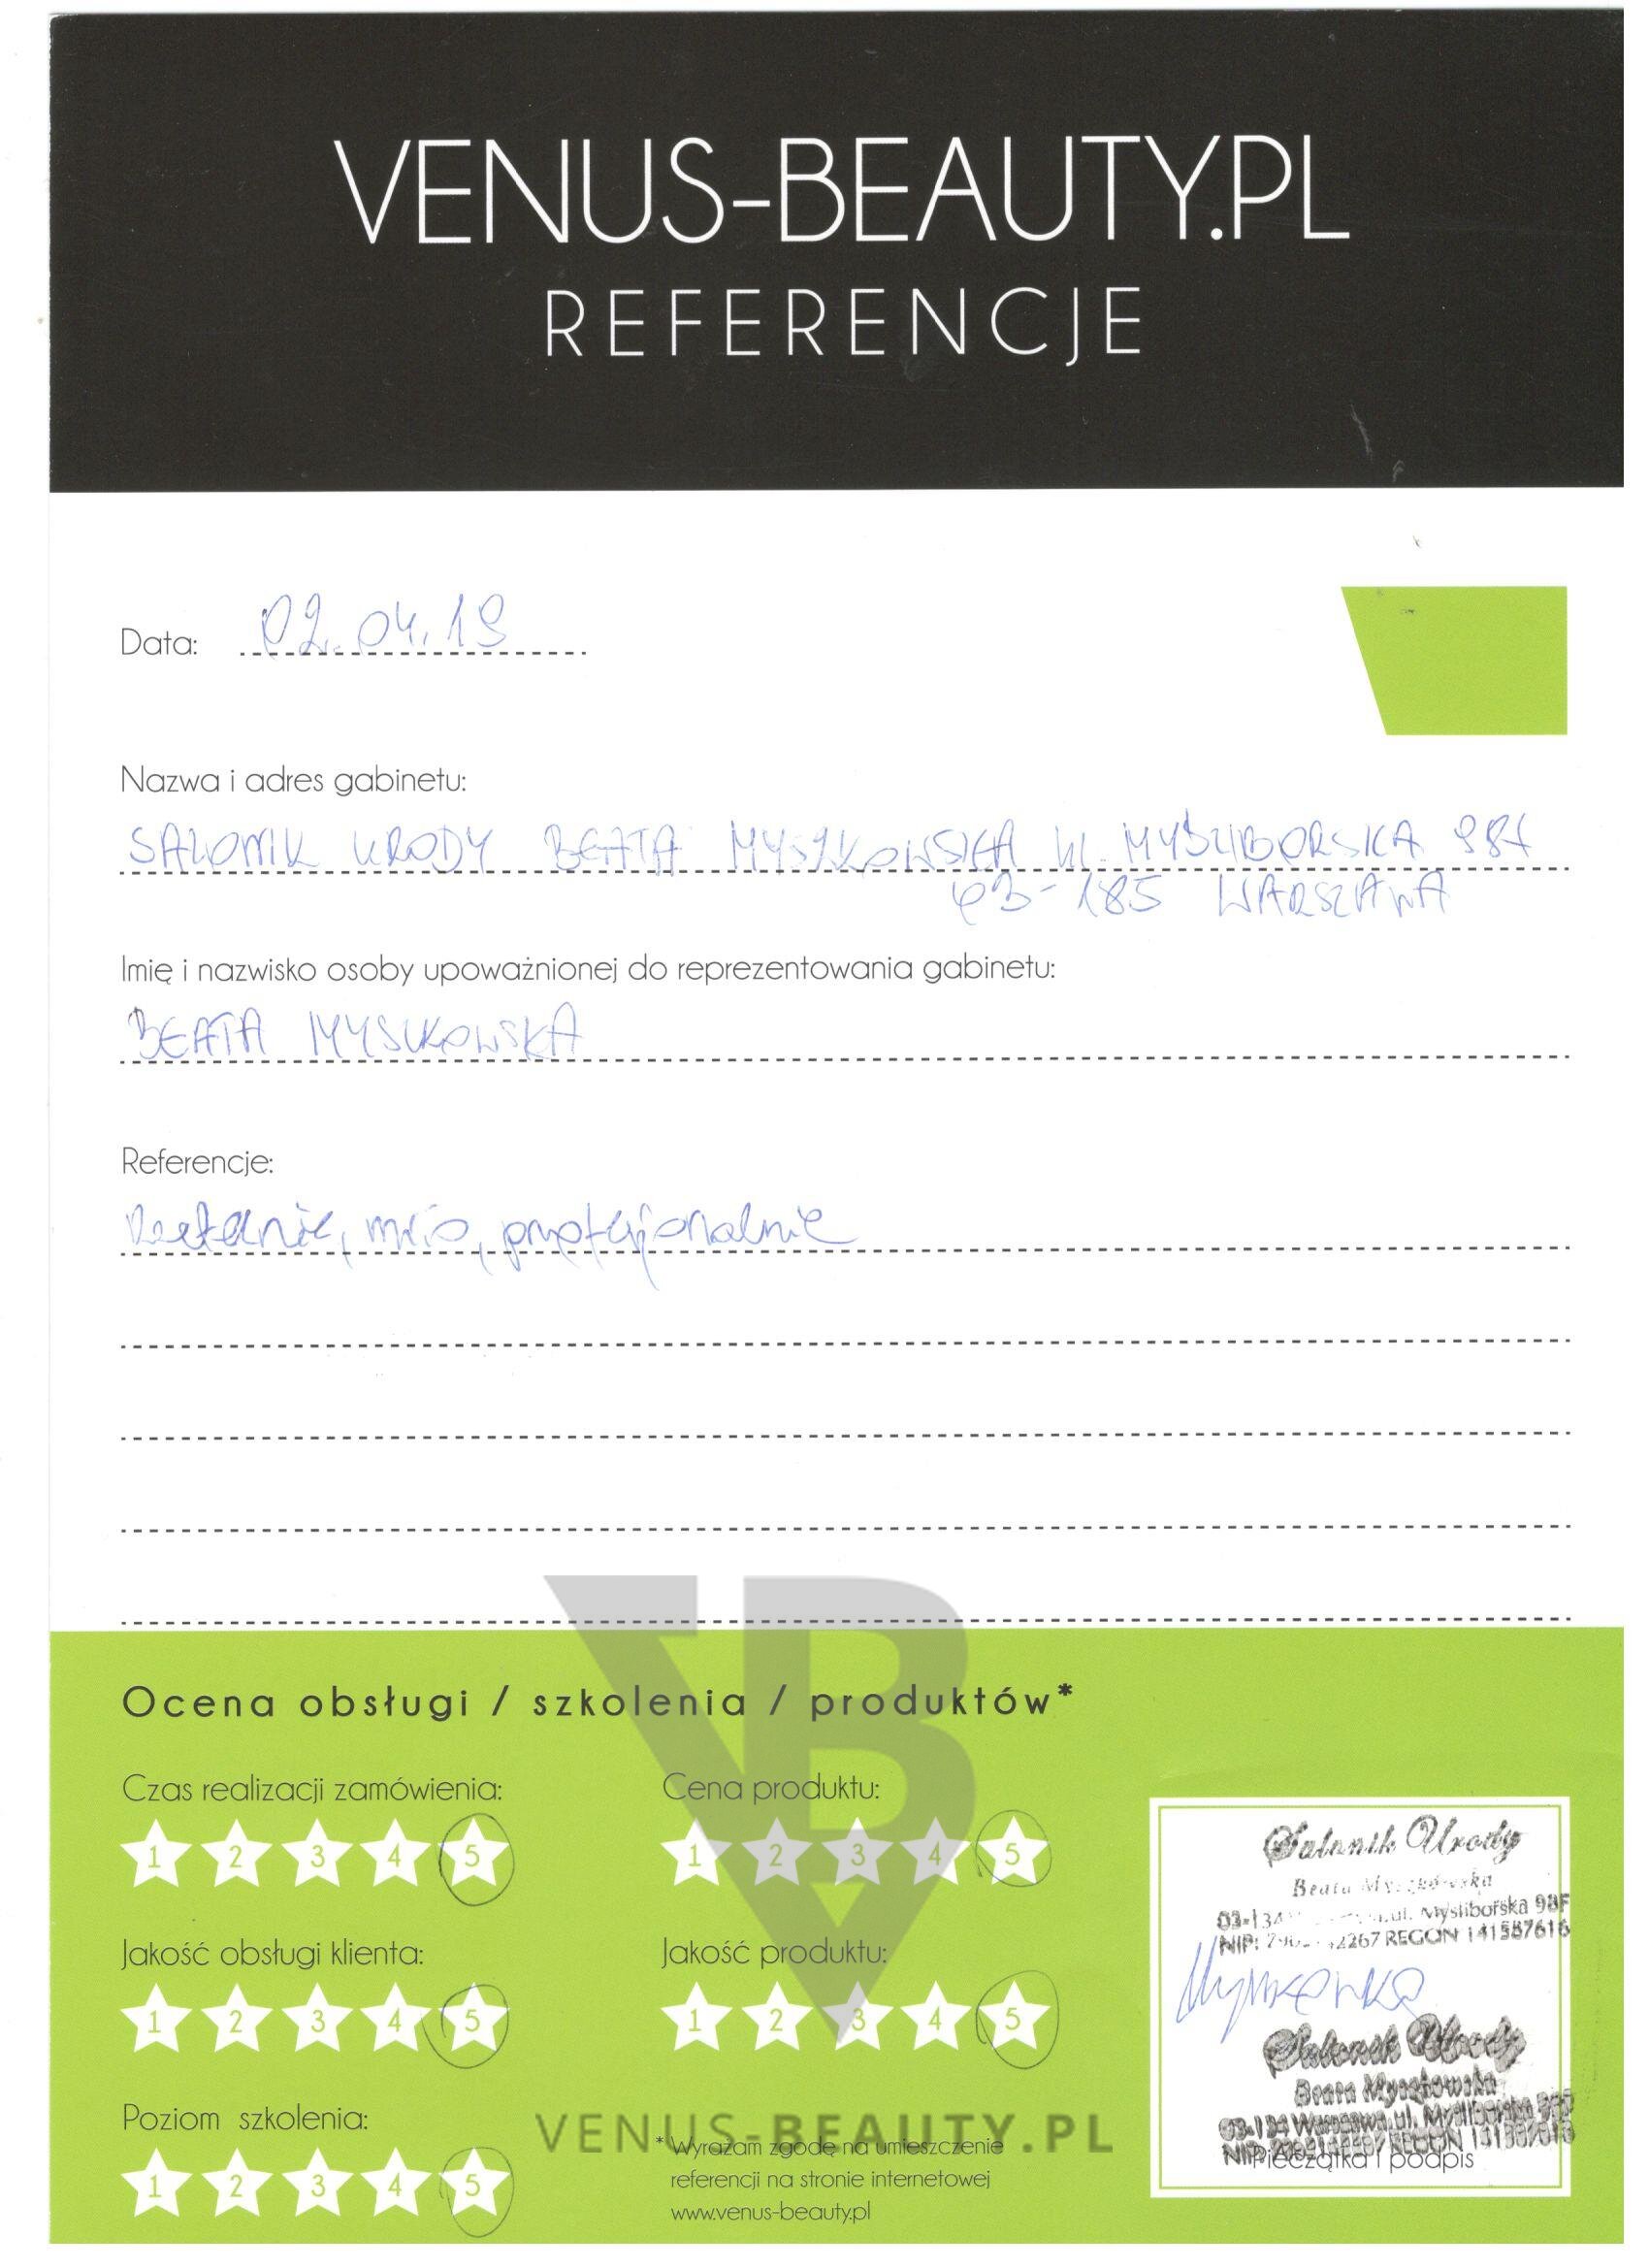 VENUS-BEAUTY.PL
REFERENCJE
Data: 02.04.19
Nazwa i adres gabinetu:
SALONIK URODY BEATA MYSZKOWSKA ul. MYŚLIBORSKA 98f
03-185 WARSZAWA
Imię i nazwisko osoby upoważnionej do reprezentowania gabinetu:
BEATA MYSZKOWSKA
Referencje:
Rzetelnie, miło, profesjonalnie
Ocena obsługi / szkolenia / produktów*
Czas realizacji zamówienia:
1 2 3 4 5
Cena produktu:
1 2 3 4 5
Jakość obsługi klienta:
1 2 3 4 5
Jakość produktu:
1 2 3 4 5
Poziom szkolenia:
1 2 3 4 5
VB
VENUS-BEAUTY.PL
* Wyrażam zgodę na umieszczenie
referencji na stronie internetowej
www.venus-beauty.pl
Salonik Urody
Beata Myszkowska
ul. Myśliborska 98F
REGON 141587616
Salonik Urody
Beata Myszkowska
03-134 Warszawa, ul. Myśliborska
Pieczątka i podpis